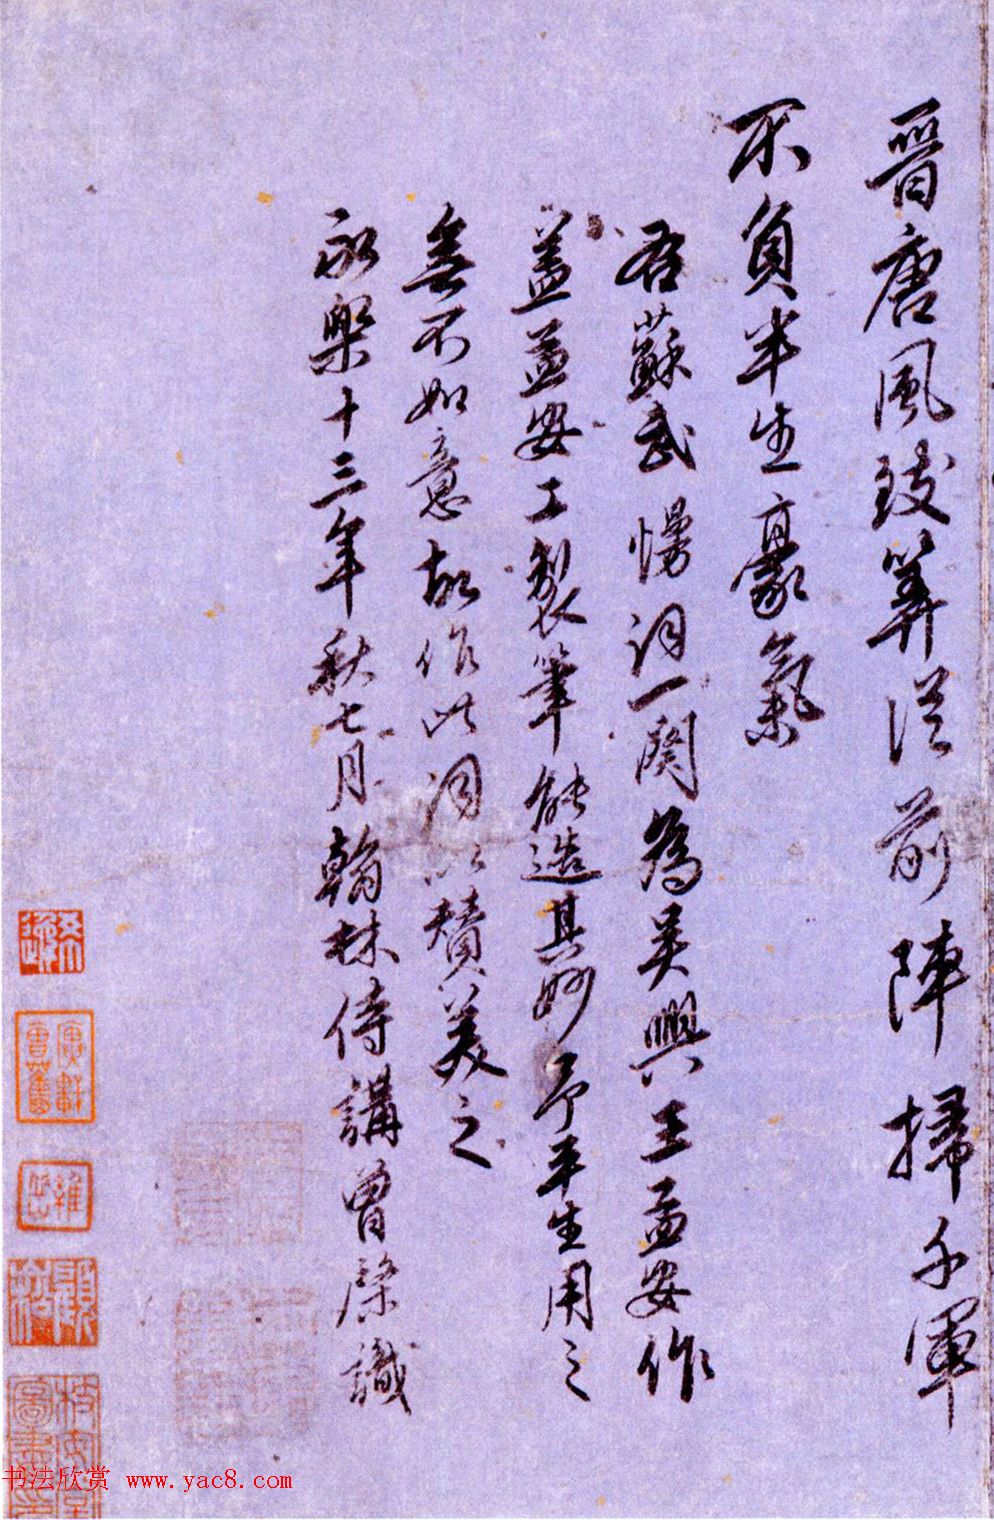 晉唐風致筭從前陣掃千軍
不負半生豪氣
右蘇武慢詞一闋為吴興王孟安作
盖孟安工製筆能造其妙予平生用之
無不如意故作此詞以贊美之
永樂十三年秋七月翰林侍講曾棨識
书法欣赏 www.yac8.com